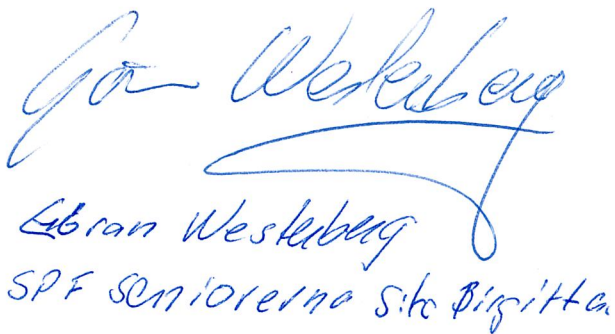 Göran Westerberg
Göran Westerberg
SPF Seniorerna S:ta Birgitta